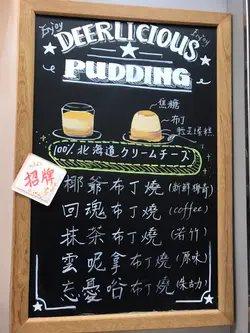 Enjoy Enjoy
DEERLICIOUS
PUDDING
焦糖
布丁
100% 北海道クリームチーズ
招牌
椰爺布丁燒 (新鮮椰青)
回魂布丁燒 (coffee)
抹茶布丁燒 (若竹)
雲呢拿布丁燒 (原味)
忘憂啥布丁燒 (朱古力)